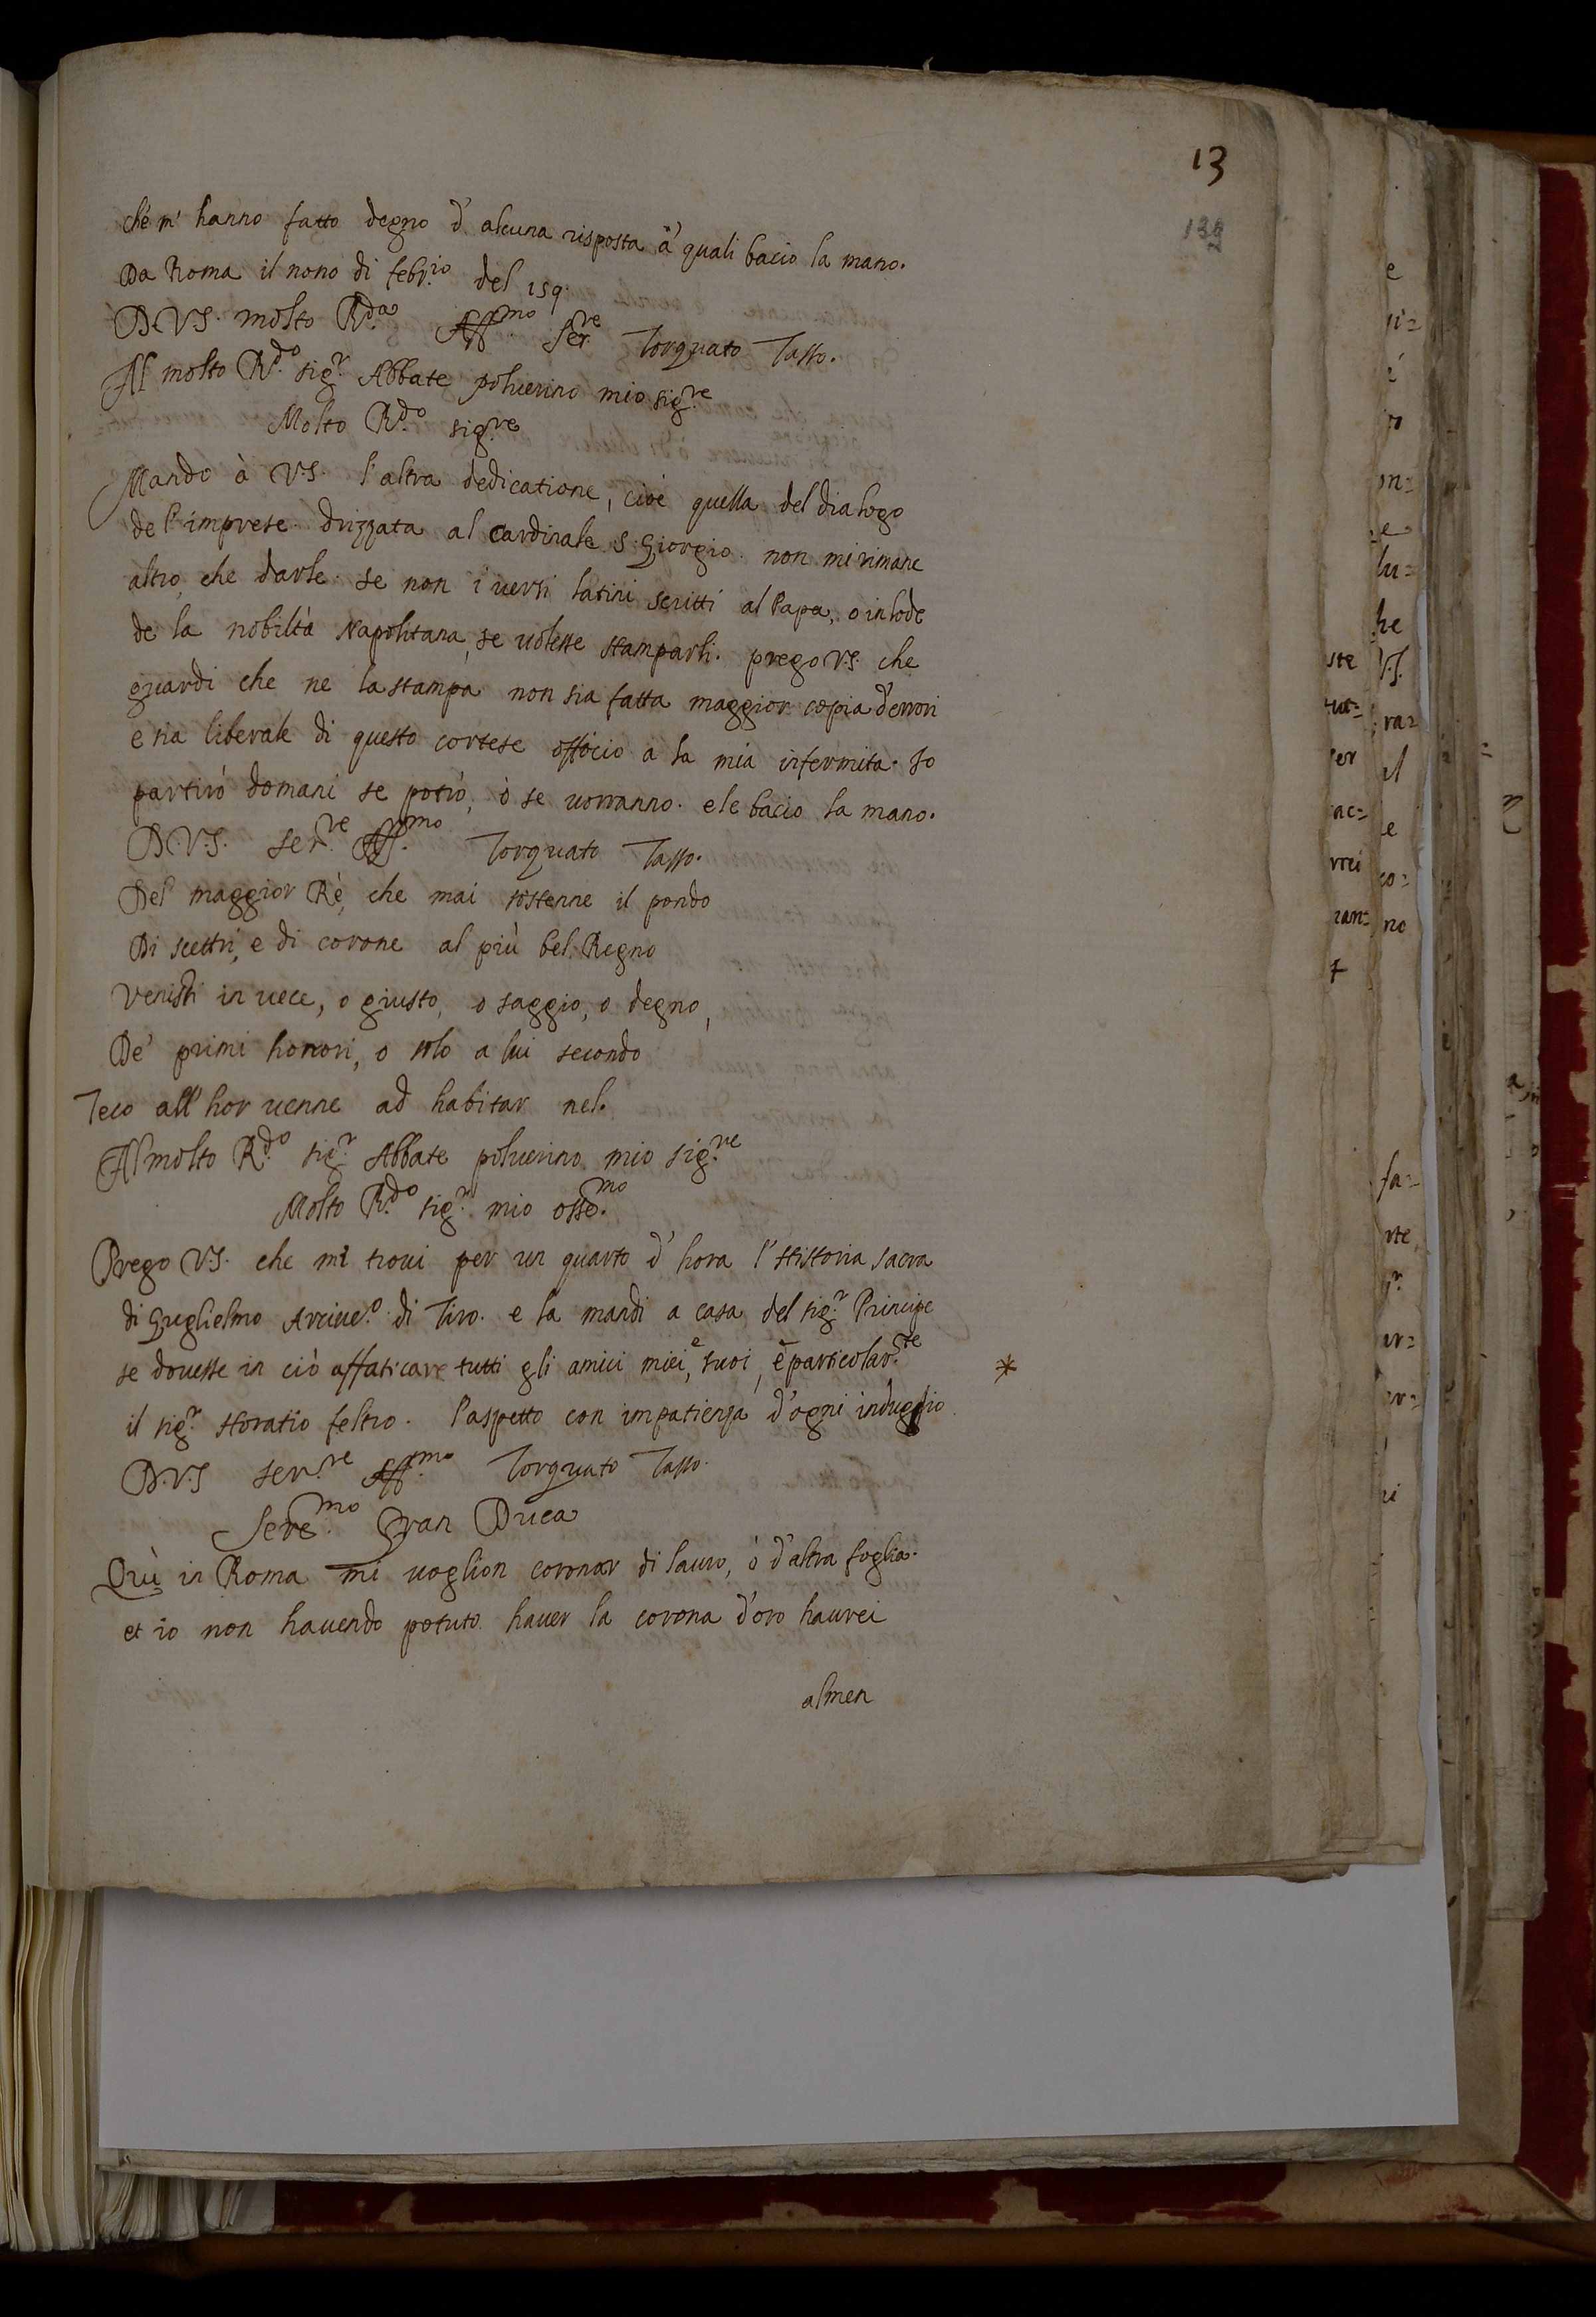 13
132
ché m' hanno fatto degno d' alcuna risposta a' quali bacio la mano.
Da Roma il nono di febr.io del 159.
D.V.S. molto R.da Aff.mo Ser.re Torquato Tasso.
Al molto R.do sig.r Abbate polverino mio sig.re
Molto R.do sig.re
Mando à V.S. l'altra dedicatione, cioè quella del dialogo
de l'imprese drizzata al Cardinale S. Giorgio. non mi rimane
altro, che darle se non i versi latini scritti al Papa, o in lode
de la nobiltà Napolitana, se volesse stamparli. prego V.S. che
guardi che ne la stampa non sia fatta maggior copia d'errori
e sia liberale di questo cortese officio a la mia infermita. Io
partirò domani se potrò, ò se vorranno. e le bacio la mano.
D.V.S. ser.re Aff.mo Torquato Tasso.
Del maggior Rè, che mai sostenne il pondo
Di scettri, e di corone al più bel Regno
Venisti in vece, o giusto, o saggio, o degno,
De' primi honori, o solo a lui secondo
Teco all'hor venne ad habitar nel.
Al molto R.do sig.r Abbate polverino mio sig.re
Molto R.do sig.r mio osse.mo
Prego V.S. che mi trovi per un quarto d' hora l'Historia sacra
di Guglielmo Arcive.o di Tiro. e la mandi a casa del sig.r Principe
se dovesse in ciò affaticare tutti gli amici miei, e suoi, e particolar.te *
il sig.r Horatio feltro. l'aspetto con impatienza d'ogni induggio.
D.V.S ser.re Aff.mo Torquato Tasso.
Sere.mo Gran Duca
Quì in Roma mi voglion coronar di lauro, ò d'altra foglia.
et io non havendo potuto haver la corona d'oro haurei
almen